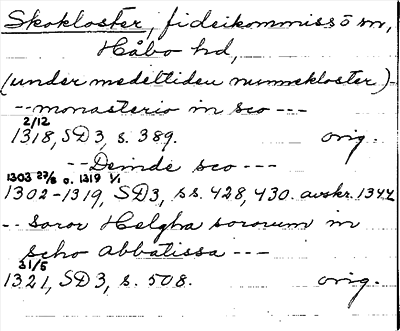 Skokloster, fideikommiss o sn,
Håbo hd,
(under medeltiden nunnekloster)
-- monasterio in sco ---
2/12
1318, SD 3, s. 389. orig.
-- Deinde sco ---
1303 27/8 o. 1319 1/1
1302-1319, SD 3, ss. 428, 430. avskr. 1344
-- soror Helgha sororum in
scho abbatissa ---
31/5
1321, SD 3, s. 508. orig.